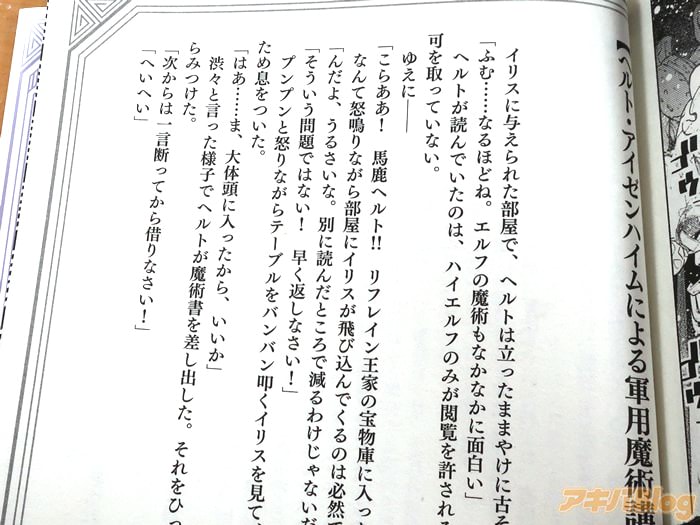 【ヘルト・アイゼンハイムによる軍用魔術講
イリスに与えられた部屋で、ヘルトは立ったままやけに古そ
「ふむ……なるほどね。エルフの魔術もなかなかに面白い」
ヘルトが読んでいたのは、ハイエルフのみが閲覧を許される
可を取っていない。
ゆえに――
「こらああ！　馬鹿ヘルト!!　リフレイン王家の宝物庫に入っ
なんて怒鳴りながら部屋にイリスが飛び込んでくるのは必然で
「んだよ、うるさいな。別に読んだところで減るわけじゃないだ
「そういう問題ではない！　早く返しなさい！」
プンプンと怒りながらテーブルをバンバン叩くイリスを見て、
ため息をついた。
「はあ……ま、大体頭に入ったから、いいか」
渋々と言った様子でヘルトが魔術書を差し出した。それをひっ
らみつけた。
「次からは一言断ってから借りなさい！」
「へいへい」
アキバBlog